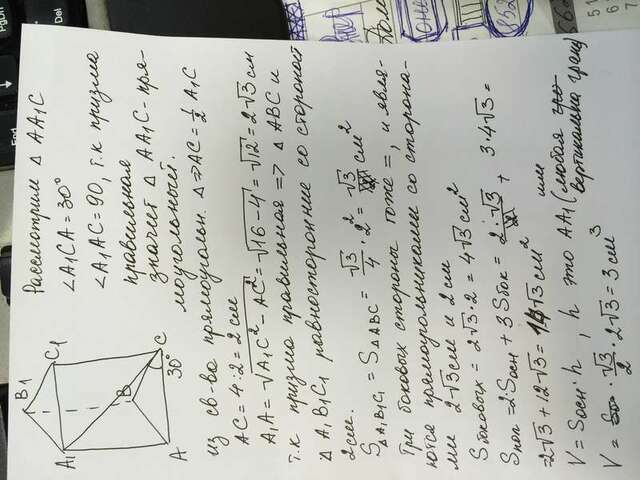 A1
B1
C1
A
B
C
30°
Рассмотрим Δ AA1C
∠A1CA = 30°
∠A1AC = 90, т.к призма
правильная
значит Δ AA1C - пря-
моугольный.
из св-ва прямоугольн. Δ ⇒ AC = 1/2 A1C
AC = 4:2 = 2 см
A1A = √A1C² - AC² = √16-4 = √12 = 2√3 см
т.к призма правильная => Δ ABC и
Δ A1B1C1 равносторонние со стороной
2см.
SΔA1B1C1 = SΔABC = √3/4 · 2² = √3 см²
Три боковых стороны тоже =, и явля-
ются прямоугольниками со сторона-
ми 2√3 см и 2 см
Sбоковых = 2√3 · 2 = 4√3 см²
Sпол = 2Sосн + 3Sбок = 2·√3 + 3·4√3 =
= 2√3 + 12√3 = 14√3 см²
V = Sосн·h, h это AA1 (или любая
вертикальна грань)
V = √3/2 · 2√3 = 3 см³
PgDn
Del